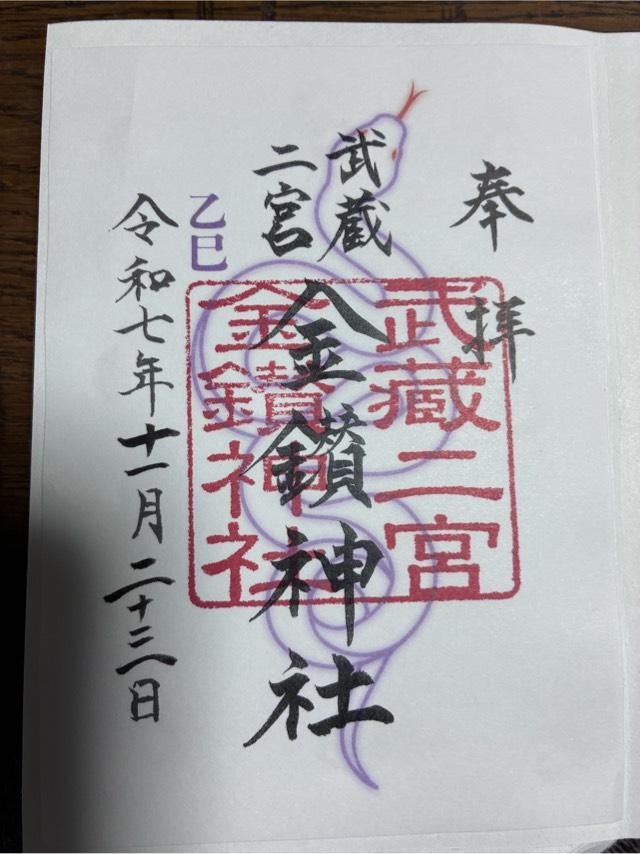 奉拝
武蔵
二宮
金鑚神社
武蔵二宮
金鑚神社
乙巳
令和七年十一月二十三日